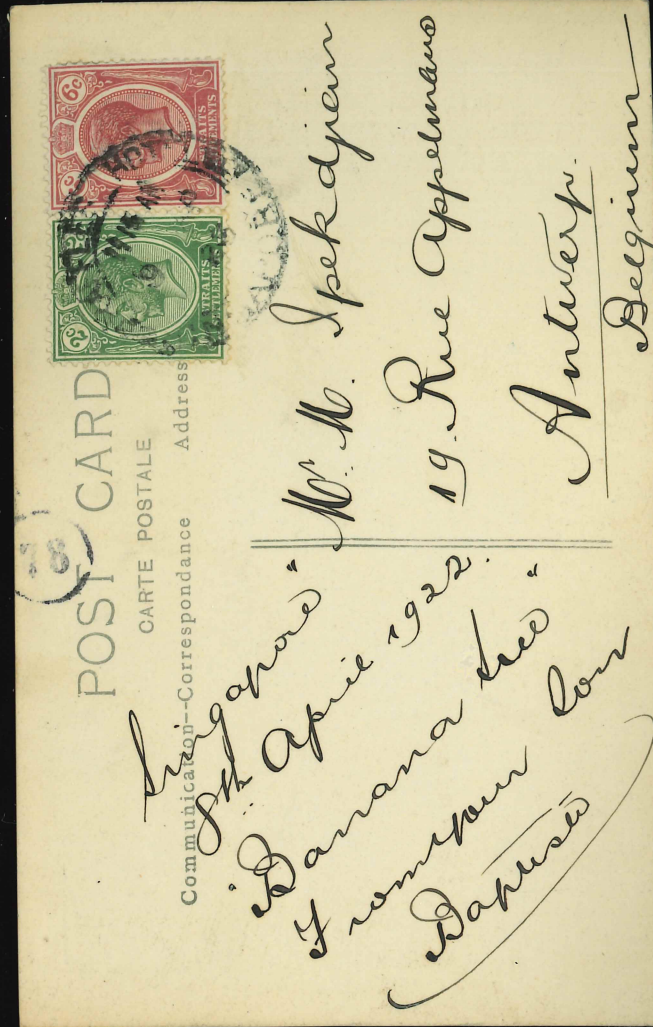 POST CARD
CARTE POSTALE
Communication--Correspondance
Address
STRAITS
SETTLEMENTS
6c
STRAITS
SETTLEMENTS
2c
18
Singapore"
8th April 1922.
"Banana tree"
From your Son
Baptiste
Mr. M. Ipekdjian
19. Rue Appelmans
Antwerp.
Belgium